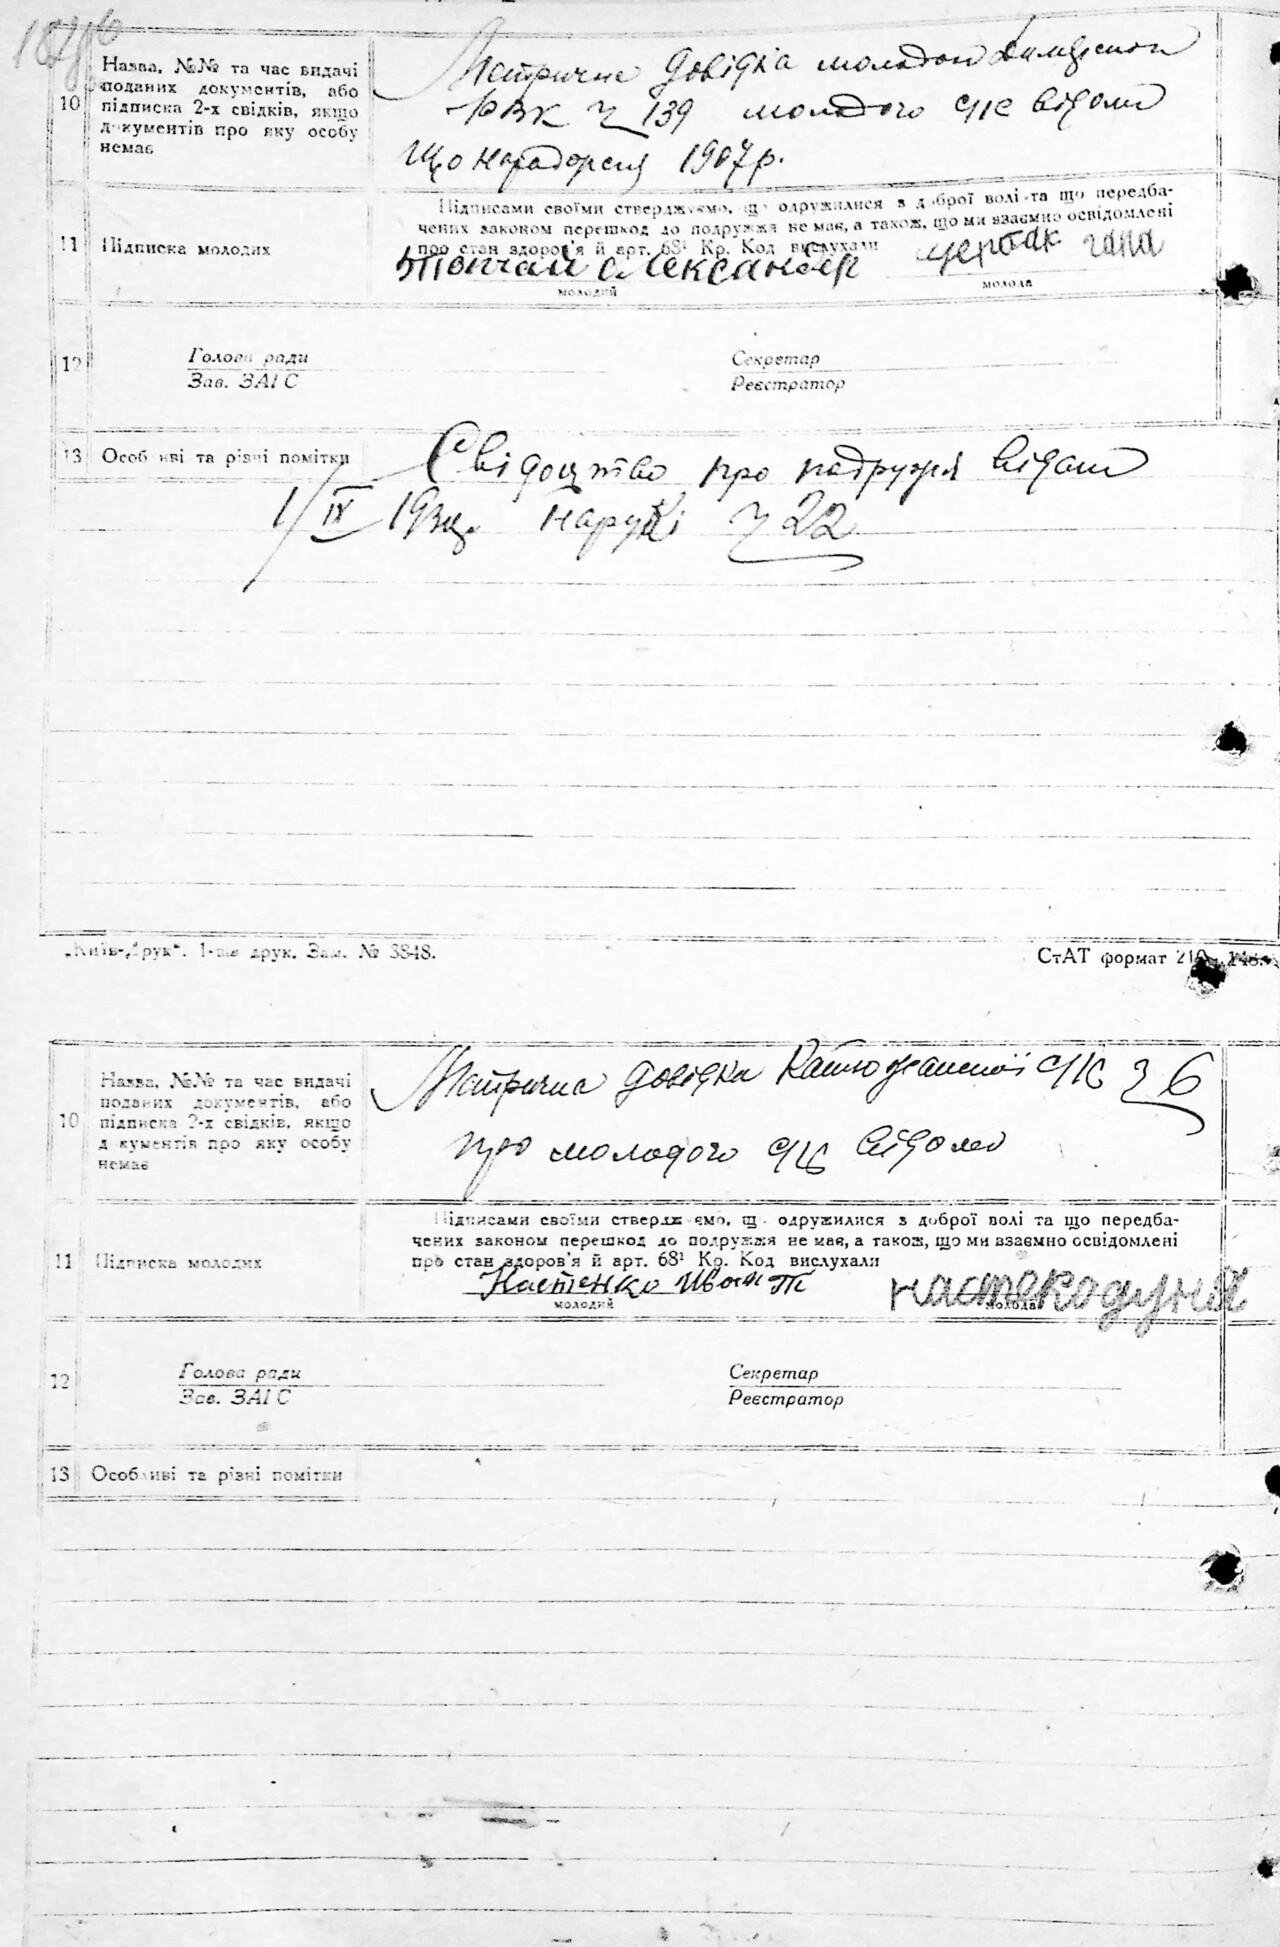 10
Назва, №№ та час видачі
поданих документів, або
підписка 2-х свідків, якщо
документів про яку особу
немає
Метрична довідка молодої
РВК 139 молодого с/к відомо
Що народився 1907 р.
11 Підписка молодих
Підписами своїми стверджуємо, що одружилися з доброї волі та що передба-
чених законом перешкод до подружжя не має, а також, що ми взаємно освідомлені
про стан здоров'я й арт. 68¹ Кр. Код вислухали
Олександер щербак гана
молодий молода
12 Голова ради Секретар
Зав. ЗАГС Реєстратор
13 Особливі та різні помітки
Свідоцтво про подружжя видані
1/IX наруки 22
„Київ-Друк". 1-ша друк. Зам. № 3848. СтАТ формат
10
Назва, №№ та час видачі
поданих документів, або
підписка 2-х свідків, якщо
документів про яку особу
немає
Метрична довідка с/к 6
про молодого с/к відомо
11 Підписка молодих
Підписами своїми стверджуємо, що одружилися з доброї волі та що передба-
чених законом перешкод до подружжя не має, а також, що ми взаємно освідомлені
про стан здоров'я й арт. 68¹ Кр. Код вислухали
Костенко Иван
молодий молода
12 Голова ради Секретар
Зав. ЗАГС Реєстратор
13 Особливі та різні помітки